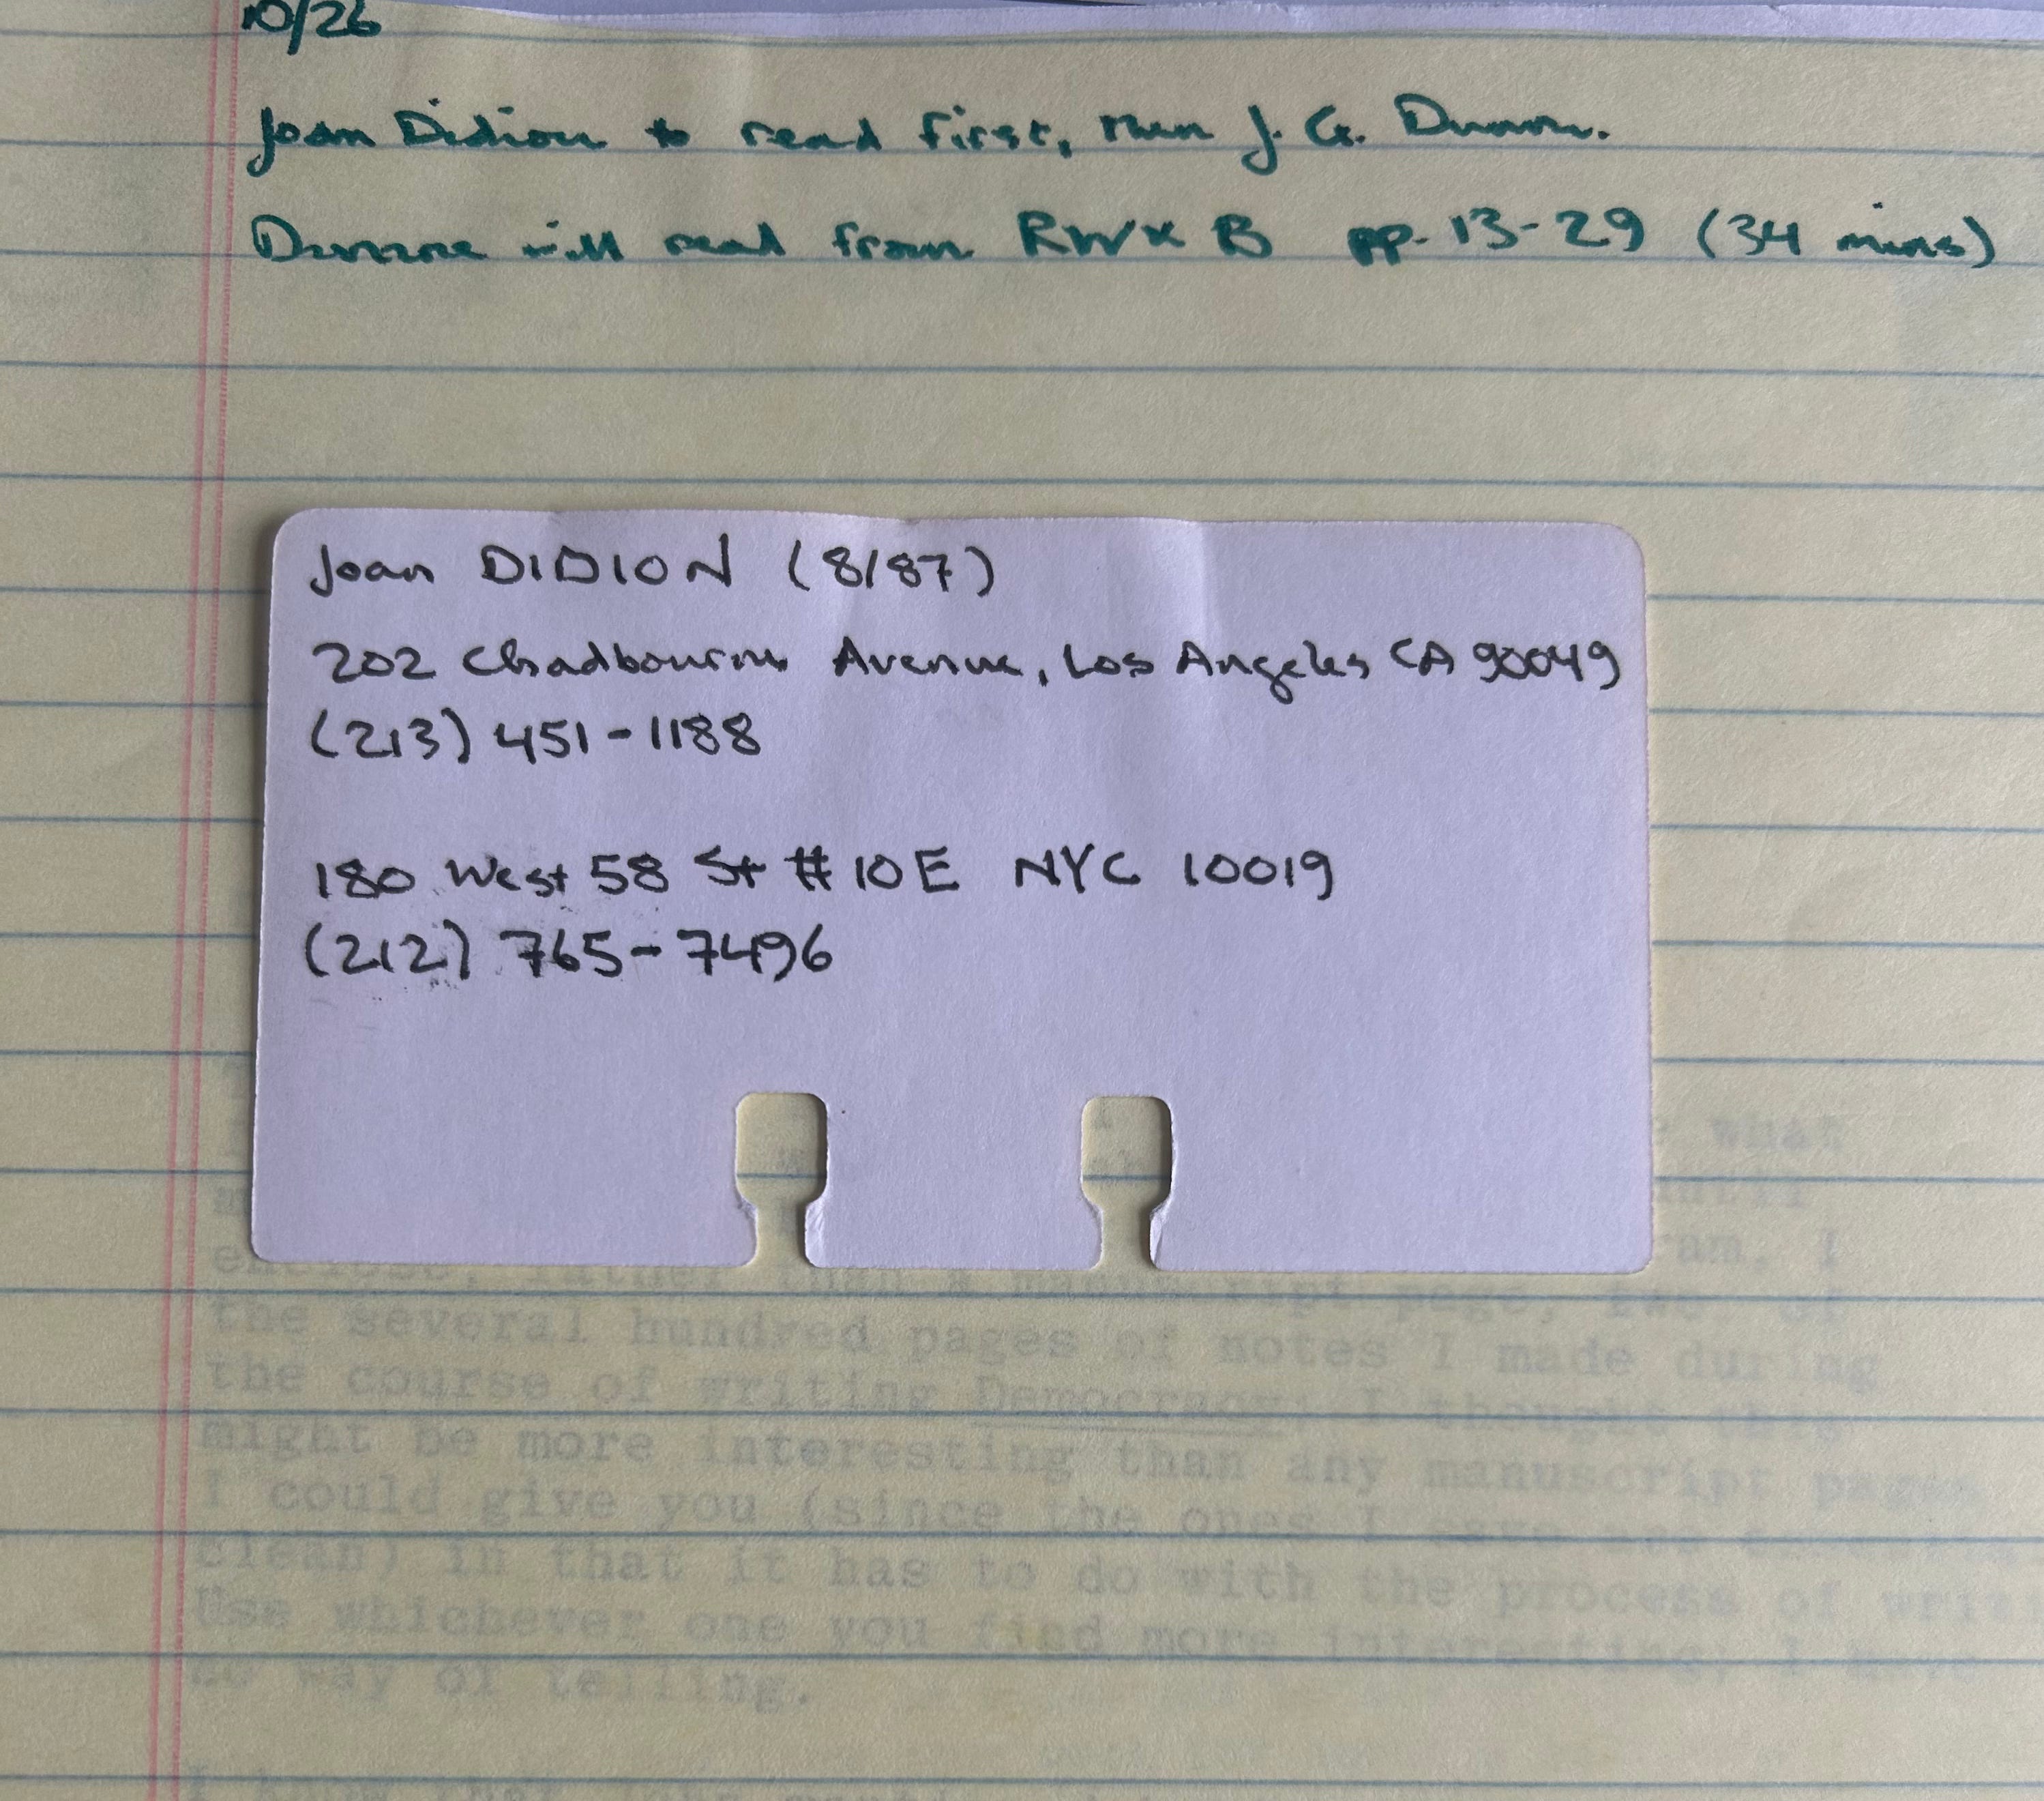 10/26
Joan Didion to read first, then J. G. Dunne.
Dunne will read from RW x B pp. 13-29 (34 mins)
Joan DIDION (8/87)
202 Chadbourne Avenue, Los Angeles CA 90049
(213) 451-1188
180 West 58 St #10E NYC 10019
(212) 765-7496
what
until
I
enclose, rather than a manuscript page, two of
the several hundred pages of notes I made during
the course of writing Democracy; I thought this
might be more interesting than any manuscript pages
I could give you (since the ones I
clean) in that it has to do with the process of
Use whichever one you find more interesting; I
no way of telling.